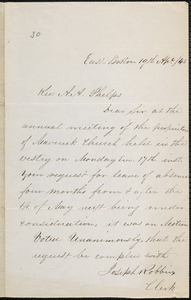 30
East Boston 19th Apl /43
Rev A.A. Phelps
Dear Sir at the
annual meeting of the
of Maverick Church held in the
vestry on Monday Eve. 17th inst
Your request for leave of absence
four months from & after the
of May next being under
consideration, it was on Motion
Voted Unanimously that the
request be complied with
Joseph Robbins
Clerk